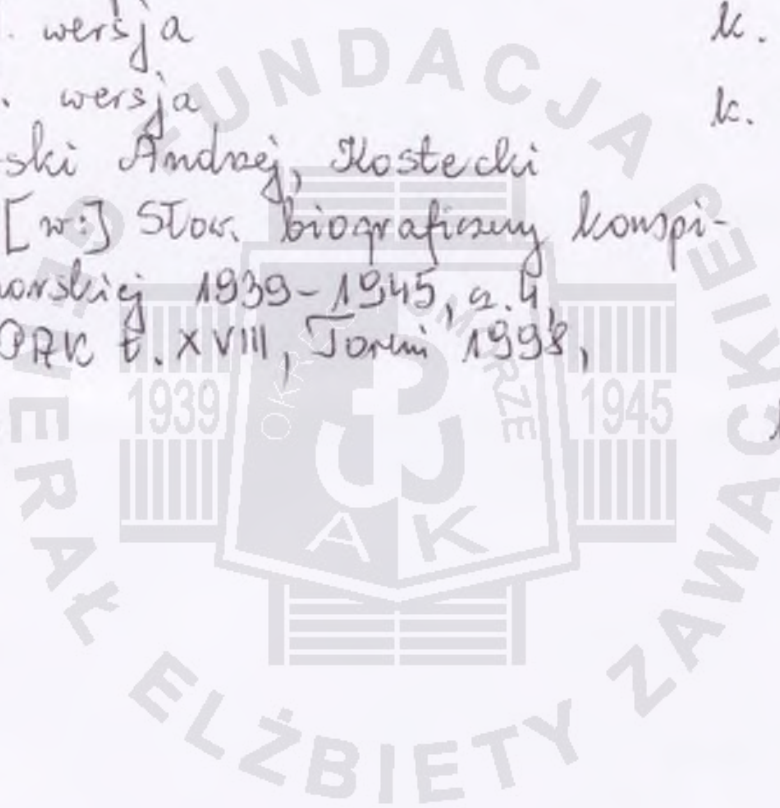 . wersja k.
. wersja k.
ski Andrzej, Kostecki
[w:] Słow. biograficzny konspi-
orskiej 1939-1945, cz. 4,
t. XVIII, Toruń 1998,
FUNDACJA GENERAŁ ELŻBIETY ZAWACKIEJ
1939 OKRĘG POMORZE 1945
A K